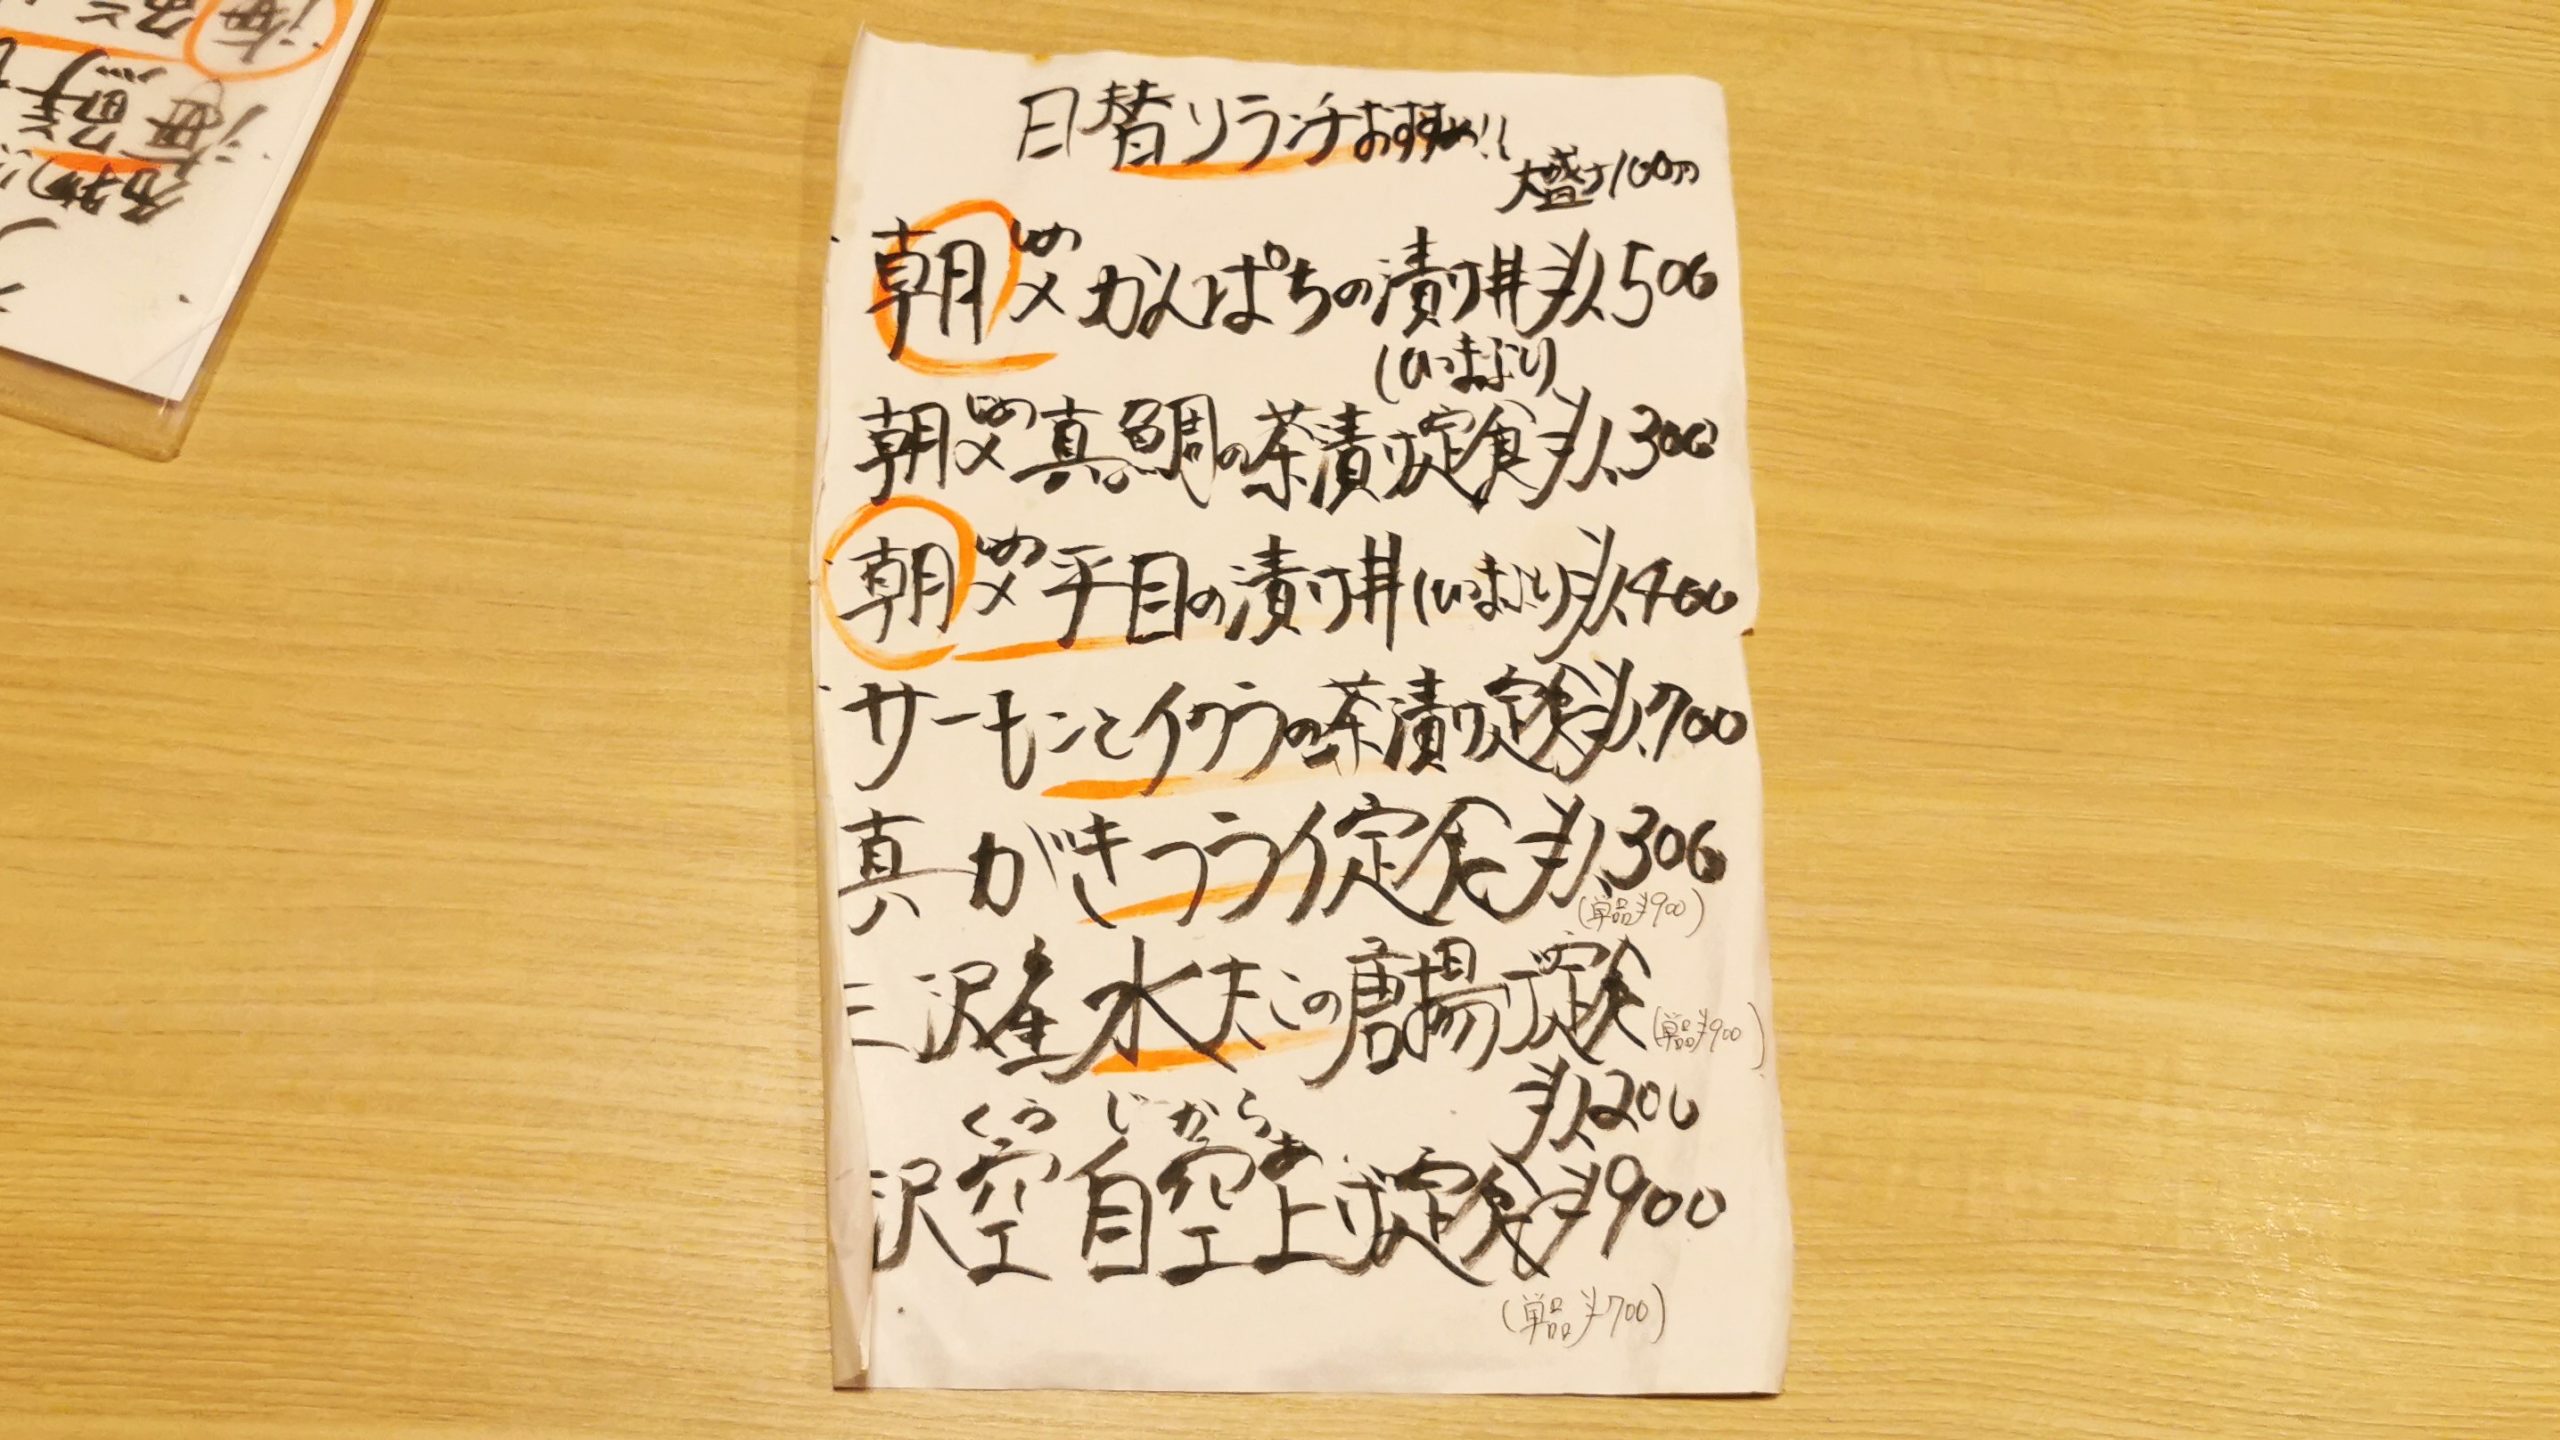 日替りランチおすすめ!!
大盛り100円
朝〆じめかんぱちの漬け丼¥1,500
(ひつまぶり)
朝〆じめ真鯛の茶漬け定食¥1,300
朝〆じめ平目の漬け丼(ひつまぶり)¥1,400
サーモンとイクラの茶漬け定食¥1,700
真がきフライ定食¥1,300
(単品¥900)
三沢産水だこの唐揚げ定食
(単品¥900)
¥1,200
くう じ から あ
沢空自空上げ定食¥900
(単品¥700)